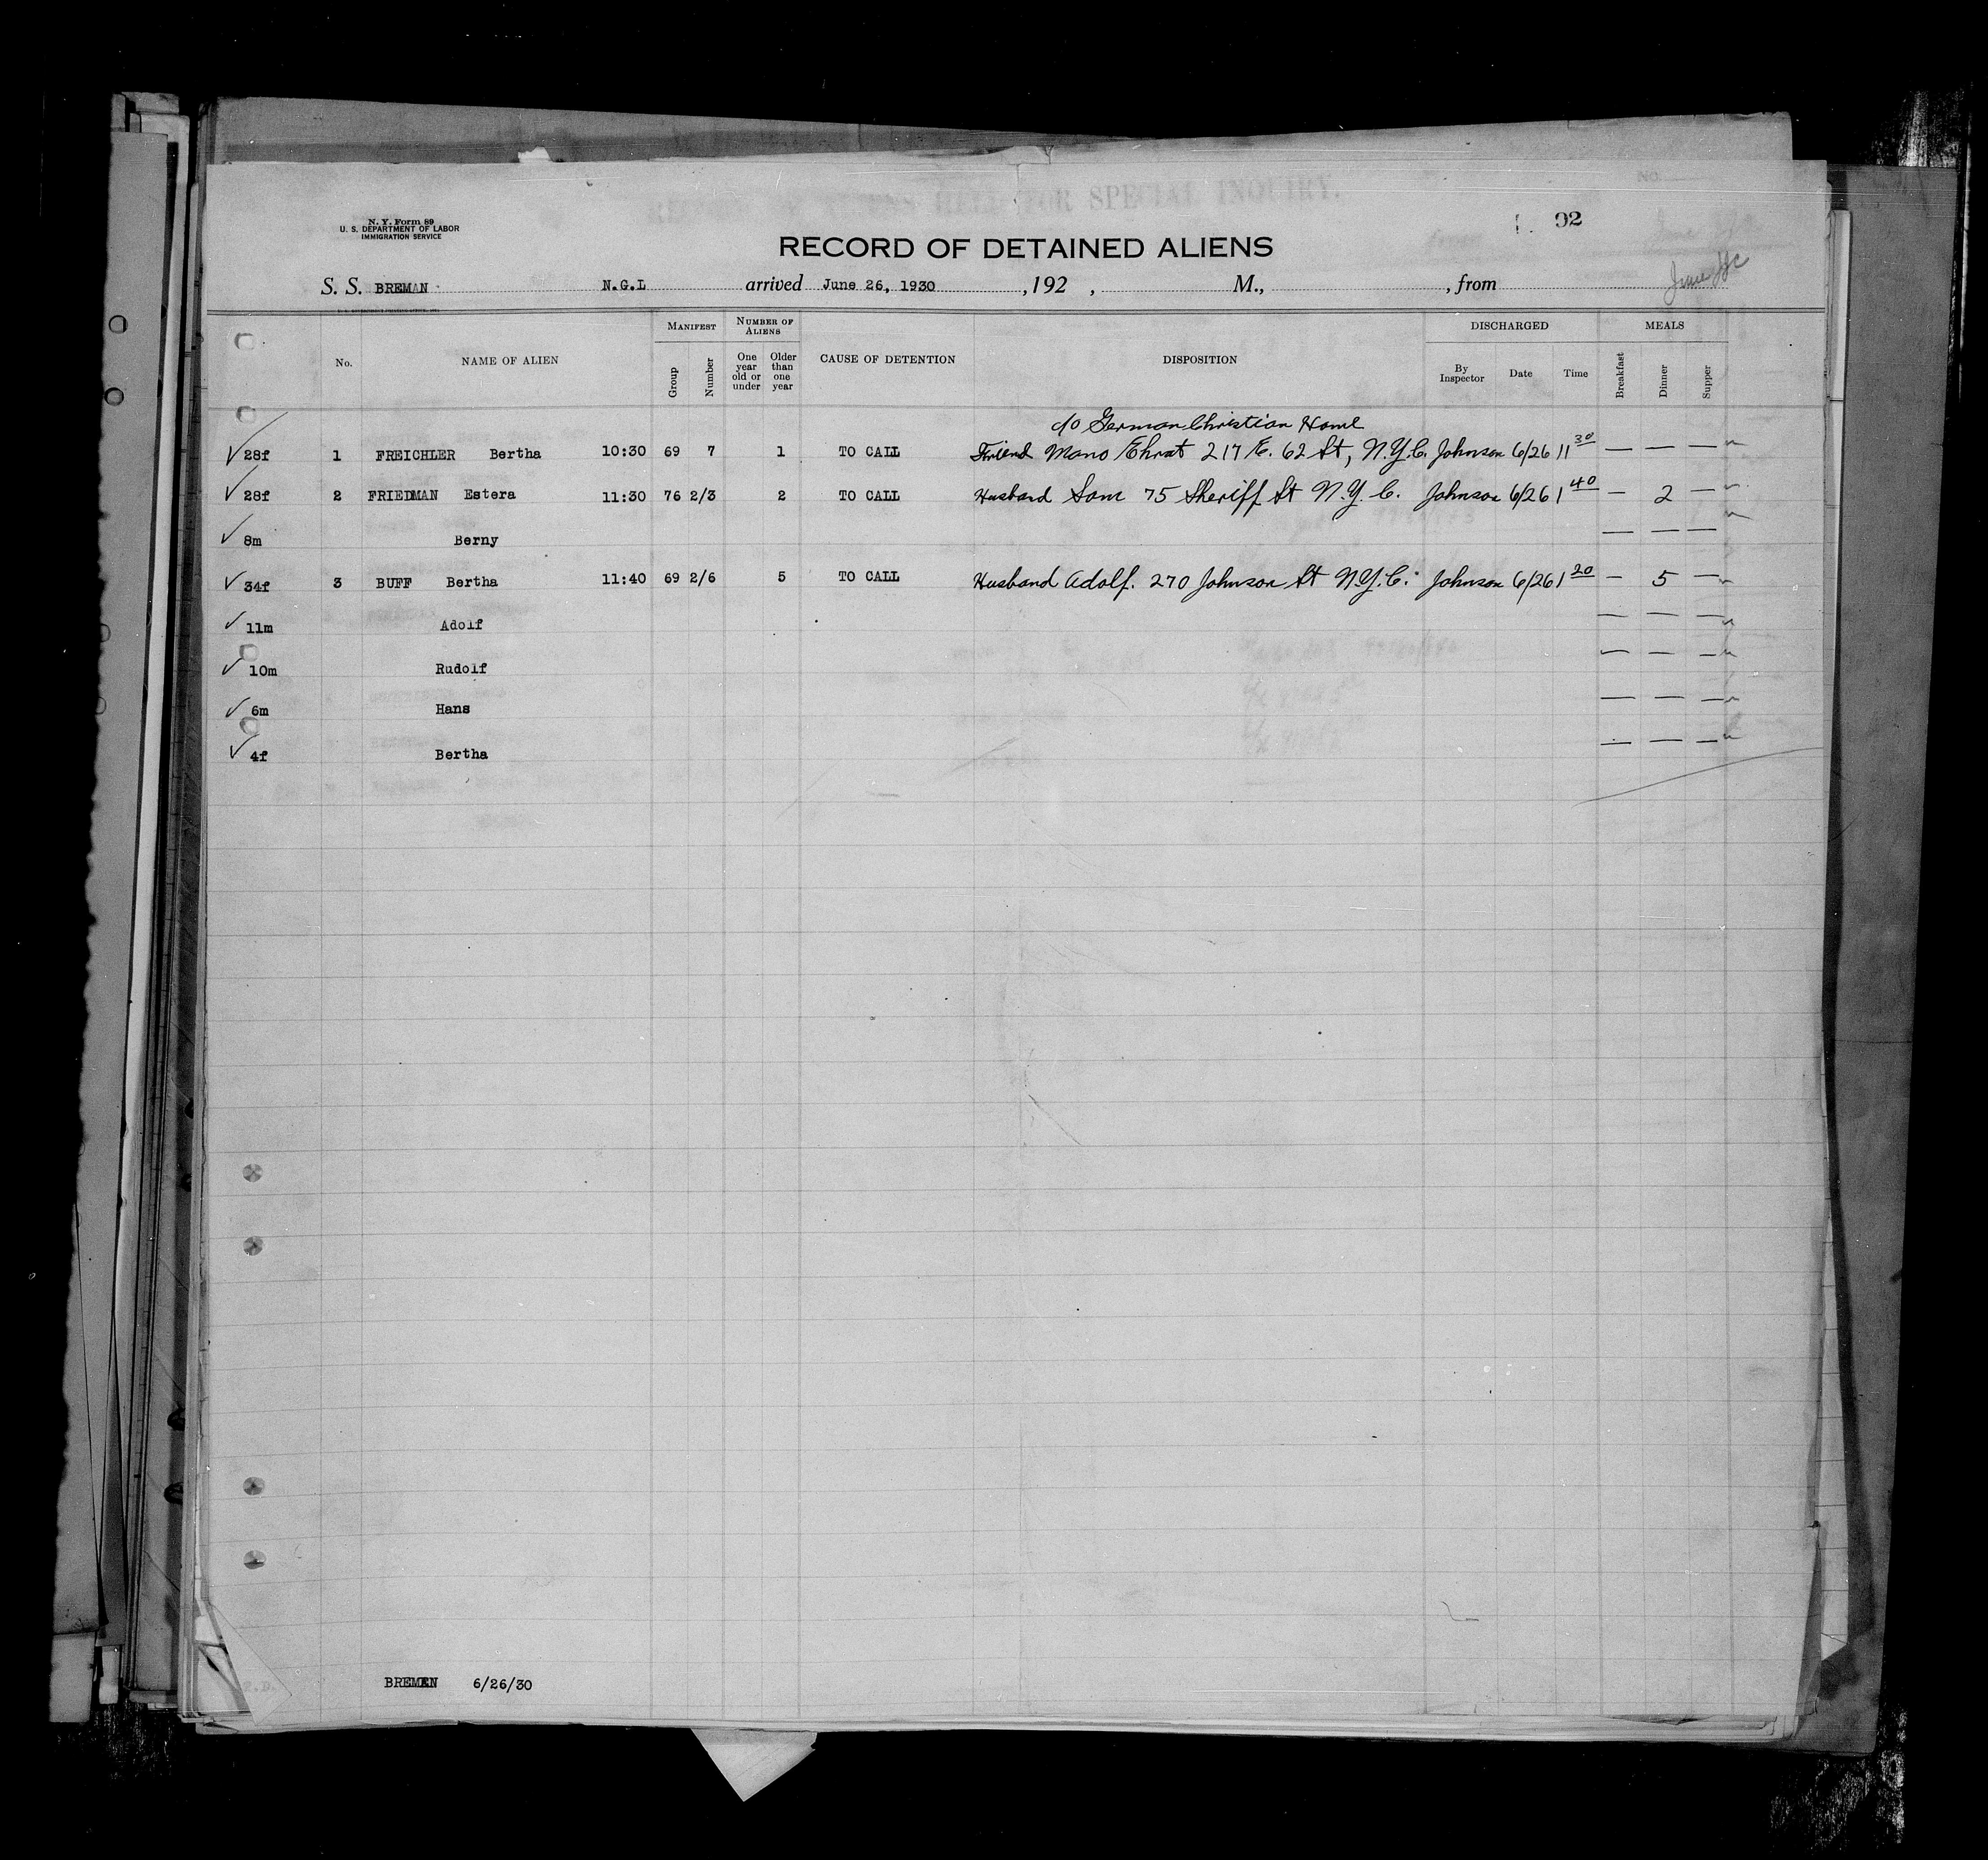 N. Y. Form 89
U. S. DEPARTMENT OF LABOR
IMMIGRATION SERVICE
HELD FOR SPECIAL INQUIRY.
No.
92
RECORD OF DETAINED ALIENS
S. S. BREMAN N.G.L arrived June 26, 1930 , 192 , M., , from
No. NAME OF ALIEN MANIFEST NUMBER OF ALIENS CAUSE OF DETENTION DISPOSITION DISCHARGED MEALS
Group Number One year old or under Older than one year By Inspector Date Time Breakfast Dinner Supper
c/o German Christian Home
28f 1 FREICHLER Bertha 10:30 69 7 1 TO CALL Friend Mano Ehrat 217 E. 62 St, N.Y.C. Johnson 6/26 11 30 — — —
28f 2 FRIEDMAN Estera 11:30 76 2/3 2 TO CALL Husband Sam 75 Sheriff St N.Y.C. Johnson 6/26 1 40 — 2 —
8m Berny — — —
34f 3 BUFF Bertha 11:40 69 2/6 5 TO CALL Husband Adolf. 270 Johnson St N.Y.C. Johnson 6/26 1 20 — 5 —
11m Adolf — — —
10m Rudolf — — —
6m Hans — — —
4f Bertha — — —
BREMEN 6/26/30